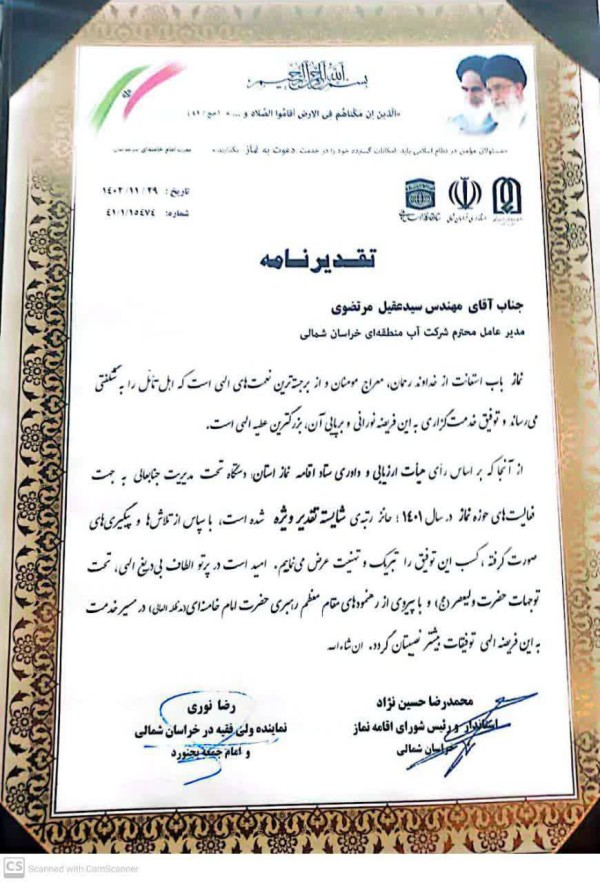 بسم الله الرحمن الرحیم
«الَّذینَ اِن مَکَّنّاهُم فِی الاَرضِ اَقامُوا الصَّلاةَ و ... » (حج / ۴۱)
«مسئولان مؤمن در نظام اسلامی باید، امکانات گسترده خود را در خدمت دعوت به نماز بگذارند.»
تاریخ: ۱۴۰۲/۱۱/۲۹
شماره: ۴۱/۱/۱۵۴۷۴
تقدیرنامه
جناب آقای مهندس سیدعقیل مرتضوی
مدیر عامل محترم شرکت آب منطقه‌ای خراسان شمالی
نماز باب استعانت از خداوند رحمان، معراج مومنان و از برجسته‌ترین نعمت‌های الهی است که اهل تأمّل را به شگفتی
می‌رساند و توفیق خدمت‌گزاری به این فریضه نورانی و برپایی آن، بزرگترین عطیه الهی است.
از آنجا که بر اساس رأی هیأت ارزیابی و داوری ستاد اقامه نماز استان، دستگاه تحت مدیریت جنابعالی به جهت
فعالیت‌های حوزه نماز در سال ۱۴۰۱؛ حائز رتبه‌ی شایسته تقدیر ویژه شده است، با سپاس از تلاش‌ها و پیگیری‌های
صورت گرفته، کسب این توفیق را تبریک و تهنیت عرض می‌نمایم. امید است در پرتو الطاف بی‌دریغ الهی، تحت
توجهات حضرت ولیعصر (عج) و با پیروی از رهنمودهای مقام معظم رهبری حضرت امام خامنه‌ای (مدظله العالی) در مسیر خدمت
به این فریضه الهی توفیقات بیشتر نصیبتان گردد. ان شاءالله
محمدرضا حسین نژاد
استاندار و رئیس شورای اقامه نماز
خراسان شمالی
رضا نوری
نماینده ولی فقیه در خراسان شمالی
و امام جمعه بجنورد
CS Scanned with CamScanner